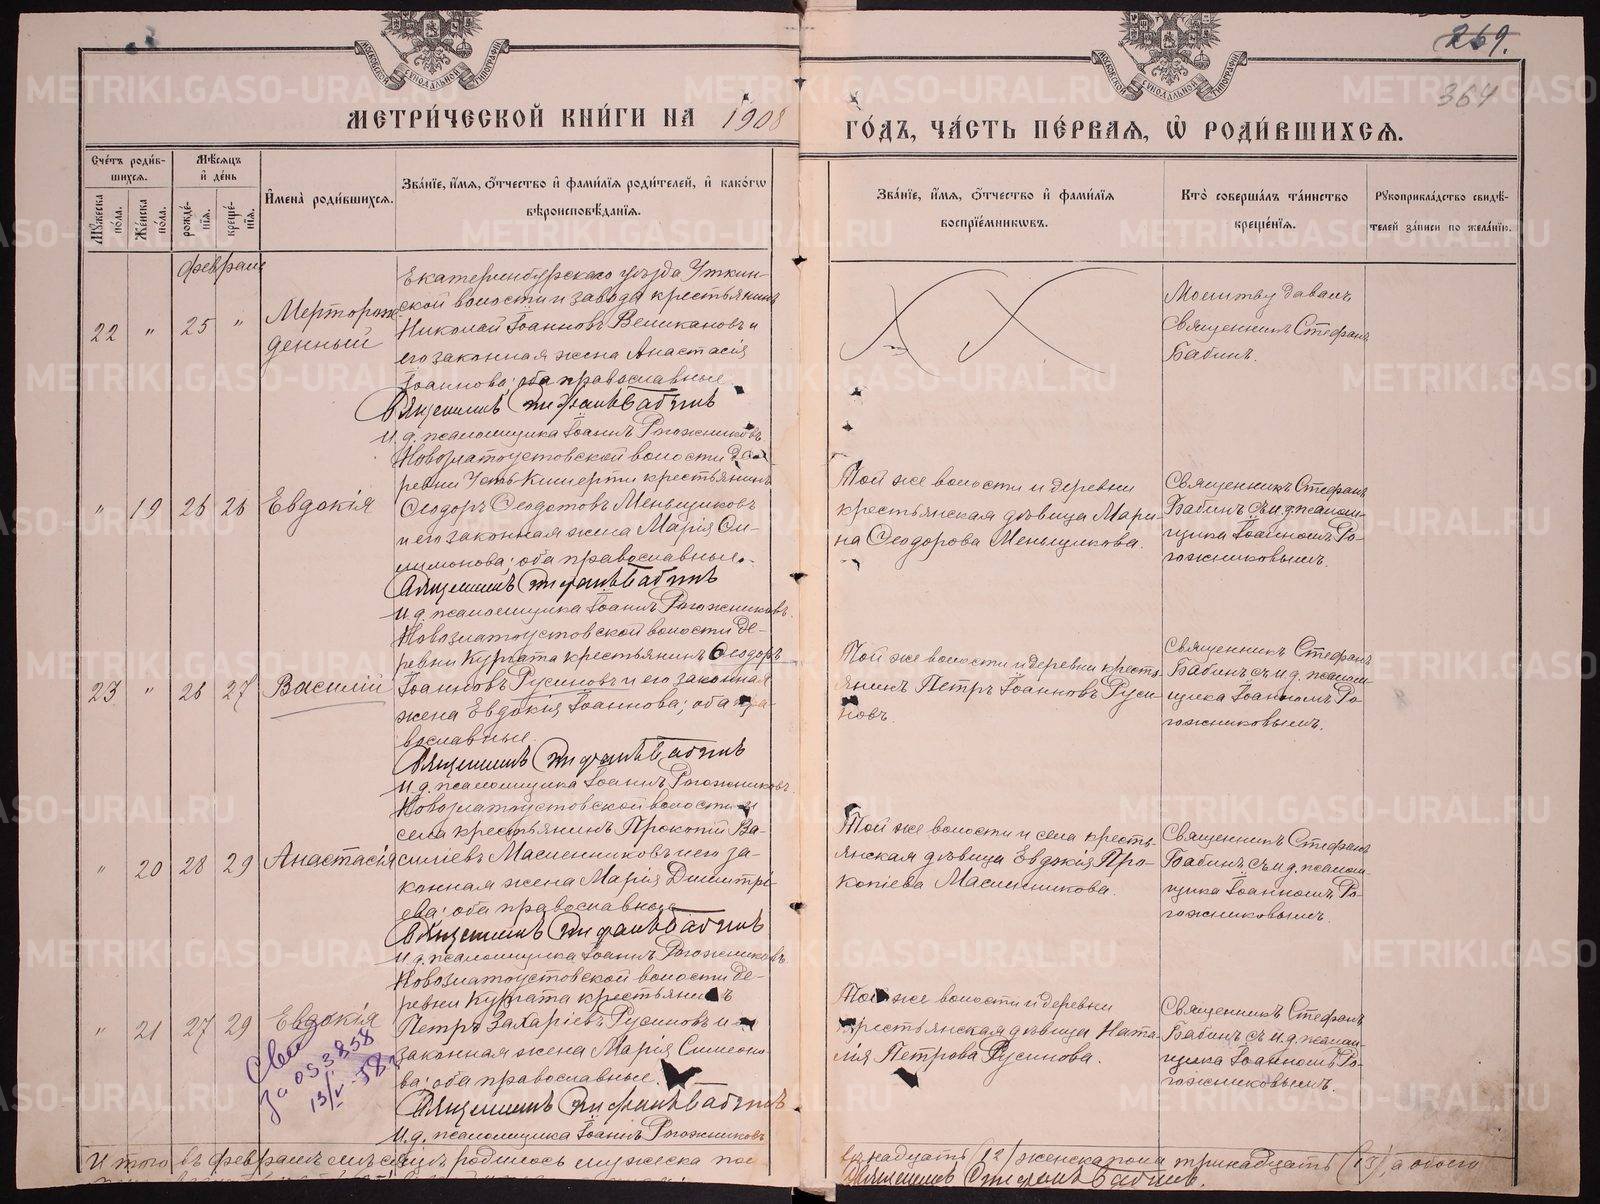 269.
364
МЕТРИ́ЧЕСКОЙ КНИ́ГИ НА 1908 ГО́ДЪ, ЧА́СТЬ ПЕ́РВАЯ, Ѡ РОДИ́ВШИХСЯ.
Сче́тъ роди́вшихся.
Мѣ́сяцъ и҆ де́нь
Мꙋ́жеска по́ла.
Же́нска по́ла.
рожде́нїѧ.
креще́нїѧ.
И҆мена̀ роди́вшихсѧ.
Зва́нїе, и҆́мѧ, ѻ҆́тчество и҆ фами́лїѧ роди́телей, и҆ како́гѡ
вѣроисповѣ́данїѧ.
Зва́нїе, и҆́мѧ, ѻ҆́тчество и҆ фами́лїѧ
воспрїе́мникѡвъ.
Кто̀ соверша́лъ та́инство
креще́нїѧ.
Рꙋкоприкла́дство свидѣ́-
телей за́писи по жела́нїю.
февраль
22 " 25 "
Мерторож-
денный
Екатеринбургскаго уѣзда Уткин-
ской волости и завода крестьянинъ
Николай Іоанновъ Великановъ и
его законная жена Анастасія
Іоаннова; оба православные
Священникъ Стефанъ Бабинъ
И. д. псаломщика Іоаннъ Рогожниковъ
Молитву давалъ
Священникъ Стефанъ
Бабинъ.
" 19 26 26
Евдокія
Новозлатоустовской волости де-
ревни Усть-Кишерти крестьянинъ
Ѳеодоръ Ѳеодотовъ Меньщиковъ
и его законная жена Марія Фи-
лимонова; оба православные.
Священникъ Стефанъ Бабинъ
И. д. псаломщика Іоаннъ Рогожниковъ.
Той же волости и деревни
крестьянская дѣвица Мари-
на Ѳеодорова Меньщикова.
Священникъ Стефанъ
Бабинъ съ и. д. псалом-
щика Іоанномъ Ро-
гожниковымъ.
23 " 26 27
Василій
Новозлатоустовской волости де-
ревни Кургата крестьянинъ Ѳеодоръ
Іоанновъ Русиновъ и его законная
жена Евдокія Іоаннова; оба пра-
вославные.
Священникъ Стефанъ Бабинъ
И. д. псаломщика Іоаннъ Рогожниковъ
Той же волости и деревни кресть-
янинъ Петръ Іоанновъ Руси-
новъ.
Священникъ Стефанъ
Бабинъ съ и. д. псалом-
щика Іоанномъ Ро-
гожниковымъ.
" 20 28 29
Анастасія
Новозлатоустовской волости и
села крестьянинъ Прокопій Ва-
силіевъ Масленниковъ и его за-
конная жена Марія Димитрі-
ева; оба православные
Священникъ Стефанъ Бабинъ
И. д. псаломщика Іоаннъ Рогожниковъ.
Той же волости и села кресть-
янская дѣвица Евдокія Про-
копіева Масленникова.
Священникъ Стефанъ
Бабинъ съ и. д. псалом-
щика Іоанномъ Ро-
гожниковымъ.
" 21 27 29
Евдокія
Новозлатоустовской волости де-
ревни Кургата крестьянинъ
Петръ Захаріевъ Русиновъ и
законная жена Марія Симеоно-
ва; оба православные.
Священникъ Стефанъ Бабинъ
И. д. псаломщика Іоаннъ Рогожниковъ
Той же волости и деревни
крестьянская дѣвица Ната-
лія Петрова Русинова.
Священникъ Стефанъ
Бабинъ съ и. д. псалом-
щика Іоанномъ Ро-
гожниковымъ.
033858
Итого въ февралѣ мѣсяцѣ родилось мужеска пола двѣнадцать (12) женска пола тринадцать (13), а обоего
Священникъ Стефанъ Бабинъ.
METRIKI.GASO-URAL.RU